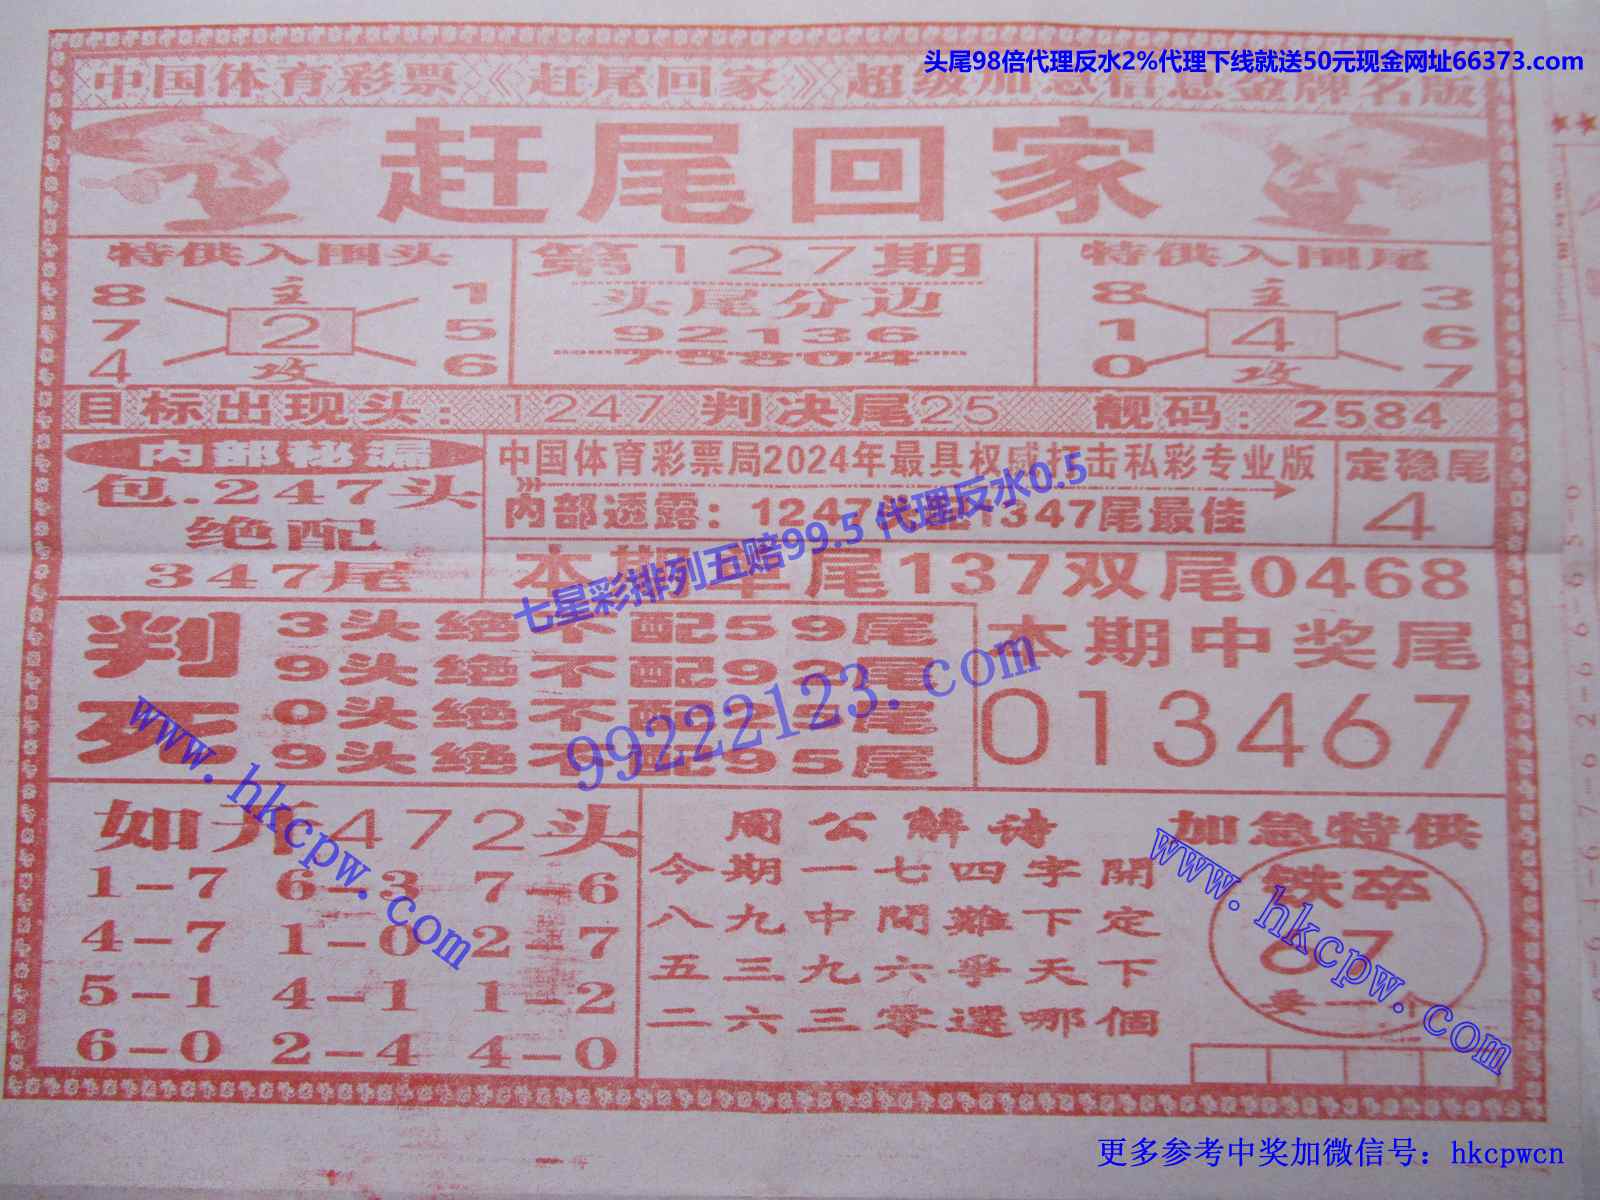 头尾98倍代理反水2%代理下线就送50元现金网址66373.com
中国体育彩票《赶尾回家》超级加急信息金牌名版
赶尾回家
特供入围头
8 主 1
7 2 5
4 攻 6
第127期
头尾分边
92136
75804
特供入围尾
8 主 3
1 4 6
0 攻 7
目标出现头：1247 判决尾25 靓码：2584
内部秘漏
包.247头
绝配
347尾
中国体育彩票局2024年最具权威打击私彩专业版
内部透露：1247 1347尾最佳
定稳尾
4
本期单尾137双尾0468
判死
3头绝不配59尾
9头绝不配92尾
0头绝不配 尾
9头绝不配95尾
本期中奖尾
013467
如开472头
1-7 6-3 7-6
4-7 1-0 2-7
5-1 4-1 1-2
6-0 2-4 4-0
周公解诗
今期一七四字開
八九中間難下定
五三九六爭天下
二六三零還哪個
加急特供
铁卒
67
丢一个
七星彩排列五赔99.5 代理反水0.5
99222123.com
www.hkcpw.com
www.hkcpw.com
更多参考中奖加微信号：hkcpwcn